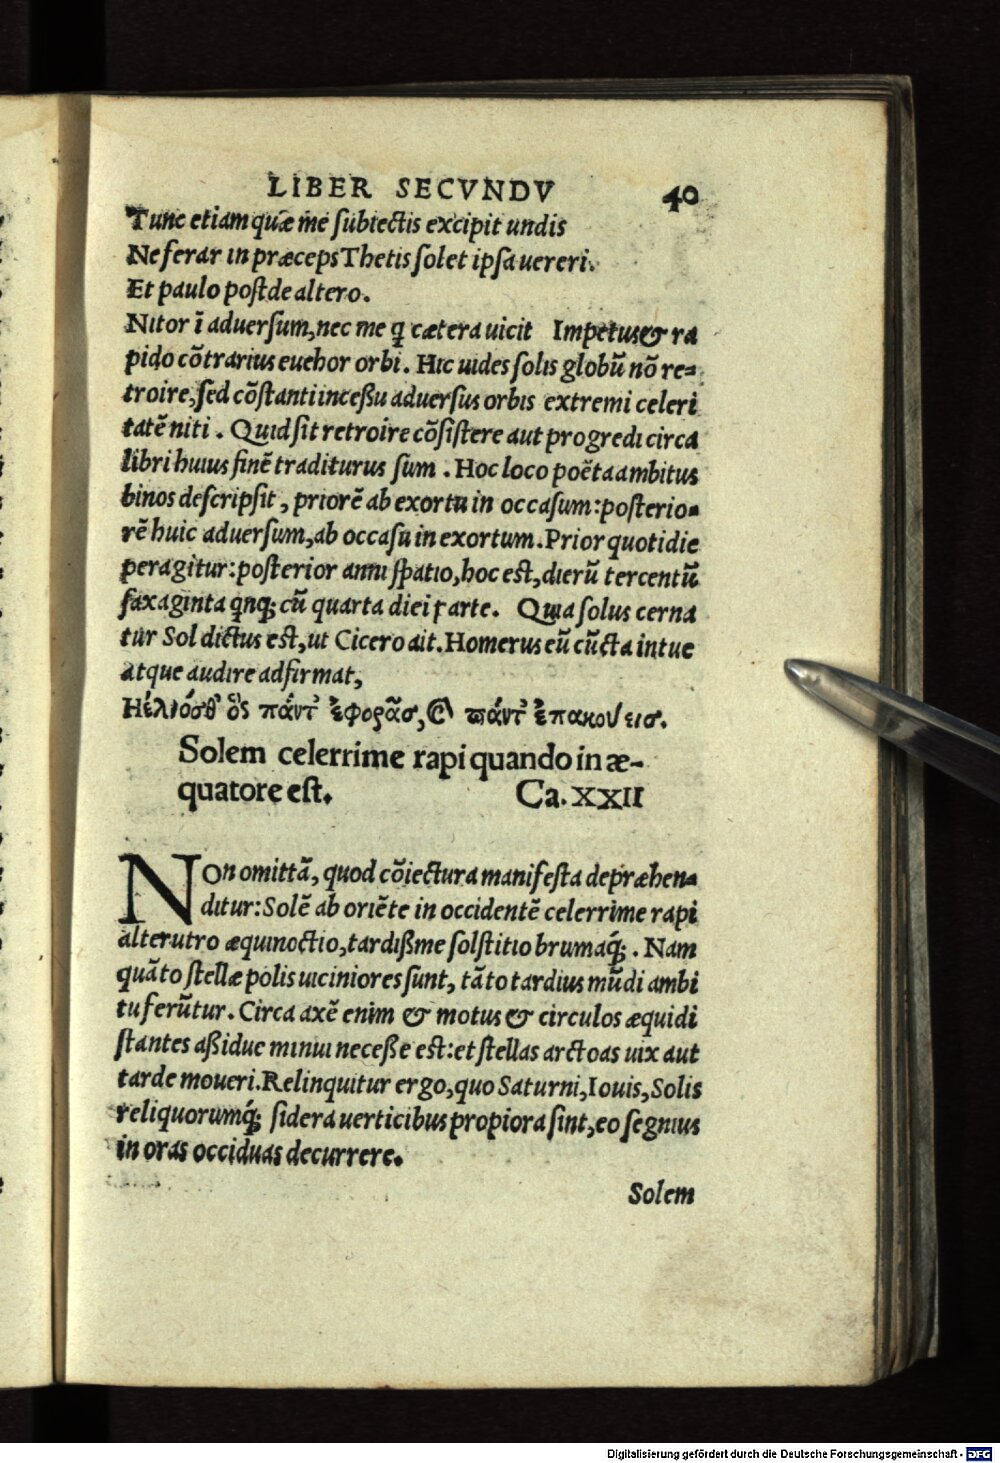 LIBER SECVNDV 40
Tunc etiam quæ me subiectis excipit undis
Ne ferar in præceps Thetis solet ipsa uereri.
Et paulo post de altero.
Nitor ī aduersum, nec me q̃ cætera uicit Impetus & ra
pido cõtrarius euehor orbi. Hic uides solis globũ nõ re=
troire, sed cõstanti incessu aduersus orbis extremi celeri
tatẽ niti. Quid sit retroire cõsistere aut progredi circa
libri huius finẽ traditurus sum. Hoc loco poëta ambitus
binos descripsit, priorẽ ab exortu in occasum: posterio=
rẽ huic aduersum, ab occasu in exortum. Prior quotidie
peragitur: posterior anni spatio, hoc est, dierũ tercentũ
saxaginta qnq; cũ quarta diei parte. Quia solus cerna
tur Sol dictus est, ut Cicero ait. Homerus eũ cũcta intue
atque audire adfirmat,
Ηέλιόσθ' ὃς πάντ' ἐφορᾶσ, Καὶ πάντ' ἐπακούεισ.
Solem celerrime rapi quando in æ-
quatore est. Ca. XXII
NOn omittã, quod cõiectura manifesta depræhen=
ditur: Solẽ ab oriẽte in occidentẽ celerrime rapi
alterutro æquinoctio, tardissme solstitio brumaq́;. Nam
quãto stellæ polis uiciniores sunt, tãto tardius mũdi ambi
tu ferũtur. Circa axẽ enim & motus & circulos æquidi
stantes assidue minui necesse est: et stellas arctoas uix aut
tarde moueri. Relinquitur ergo, quo Saturni, Iouis, Solis
reliquorumq́; sidera uerticibus propiora sint, eo segnius
in oras occiduas decurrere.
Solem
Digitalisierung gefördert durch die Deutsche Forschungsgemeinschaft - DFG